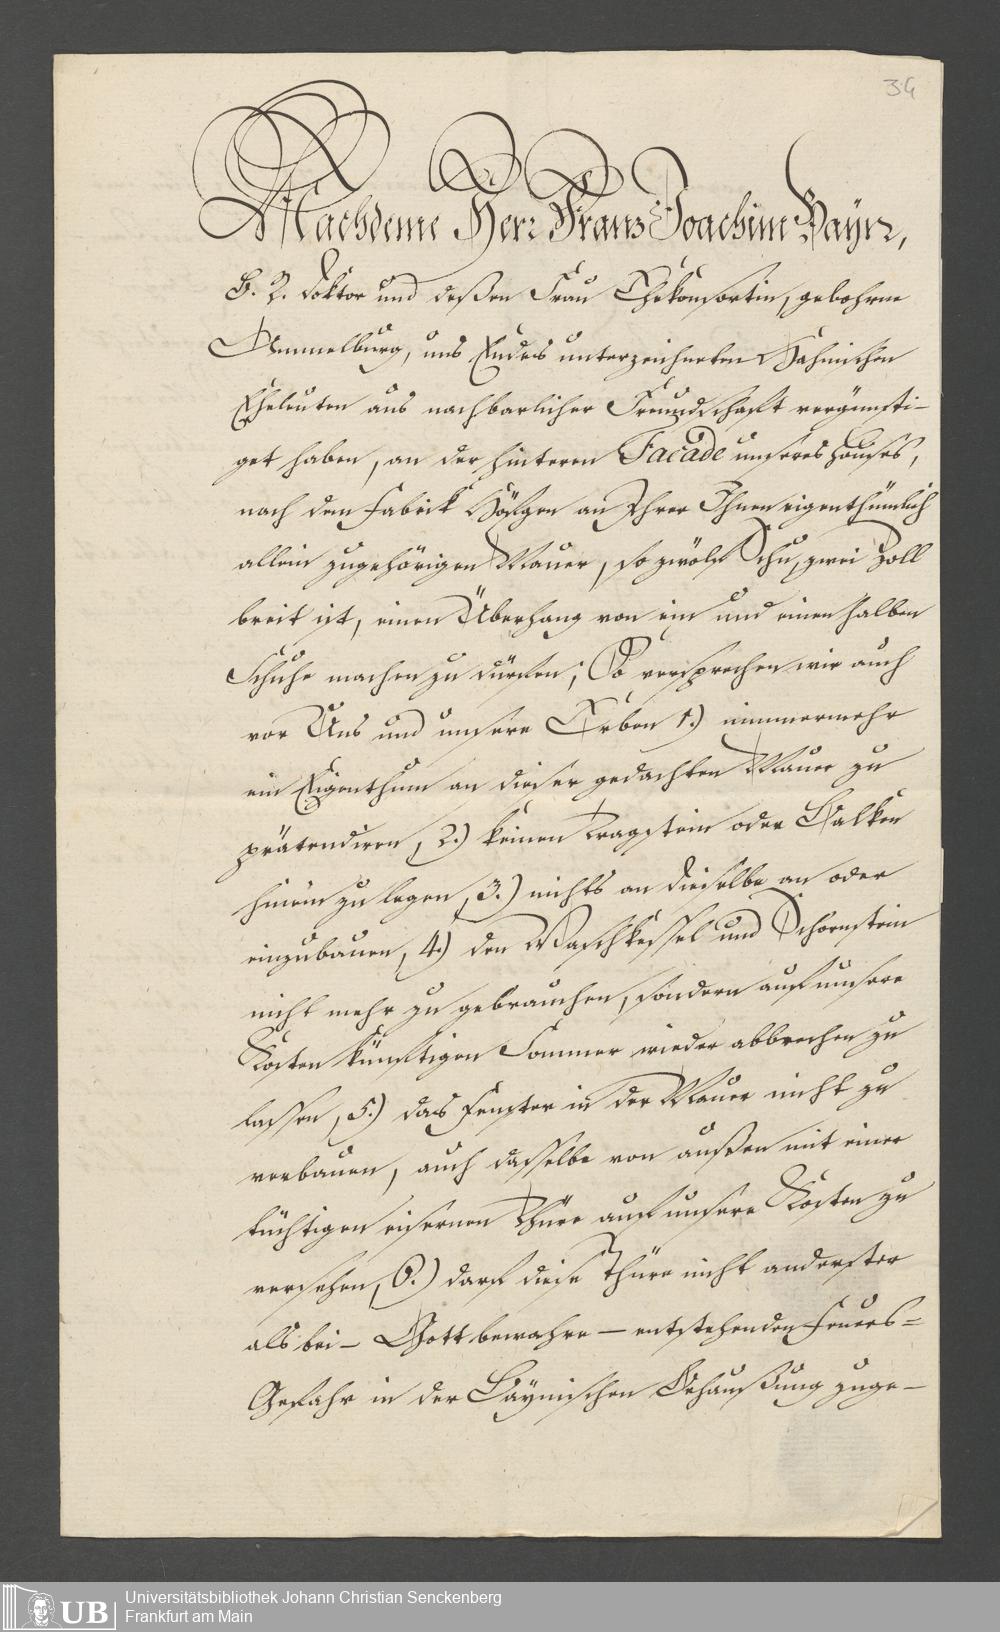 34
Nachdeme Herr Franz Joachim Bayer,
B. R. Doktor und deßen Frau Ehekonsortin, gebohrne
Ammelburg, uns Endes unterzeichneten Hahnischen
Eheleuten aus nachbarlicher Freundschaft vergünsti-
get haben, an der hinteren Facade unseres Hauses,
nach dem Fabrick Höfgen an Ihrer Ihnen eigenthümlich
allein zugehörigen Mauer, so zwölf Schu, zwei Zoll
breit ist, einen Überhang von ein und einen halben
Schuhe machen zu dürfen; So versprechen wir auch
vor Uns und unsere Erben 1.) nimmermehr
ein Eigenthum an dieser gedachten Mauer zu
prätendiren, 2.) keinen Tragstein oder Balken
hinein zu legen, 3.) nichts an dieselbe an oder
einzubauen, 4.) den Waschkessel und Schornstein
nicht mehr zu gebrauchen, sondern auf unsere
Kosten künftigen Sommer wieder abbrechen zu
lassen, 5.) das Fenster in der Mauer nicht zu
verbauen, auch dasselbe von außen mit einer
tüchtigen eisernen Thüre auf unsere Kosten zu
versehen, 6.) darf diese Thüre nicht anderster
als bei - Gott bewahre - entstehenden Feuers-
Gefahr in der Bayrischen Behaußung zuge-
UB
Universitätsbibliothek Johann Christian Senckenberg
Frankfurt am Main